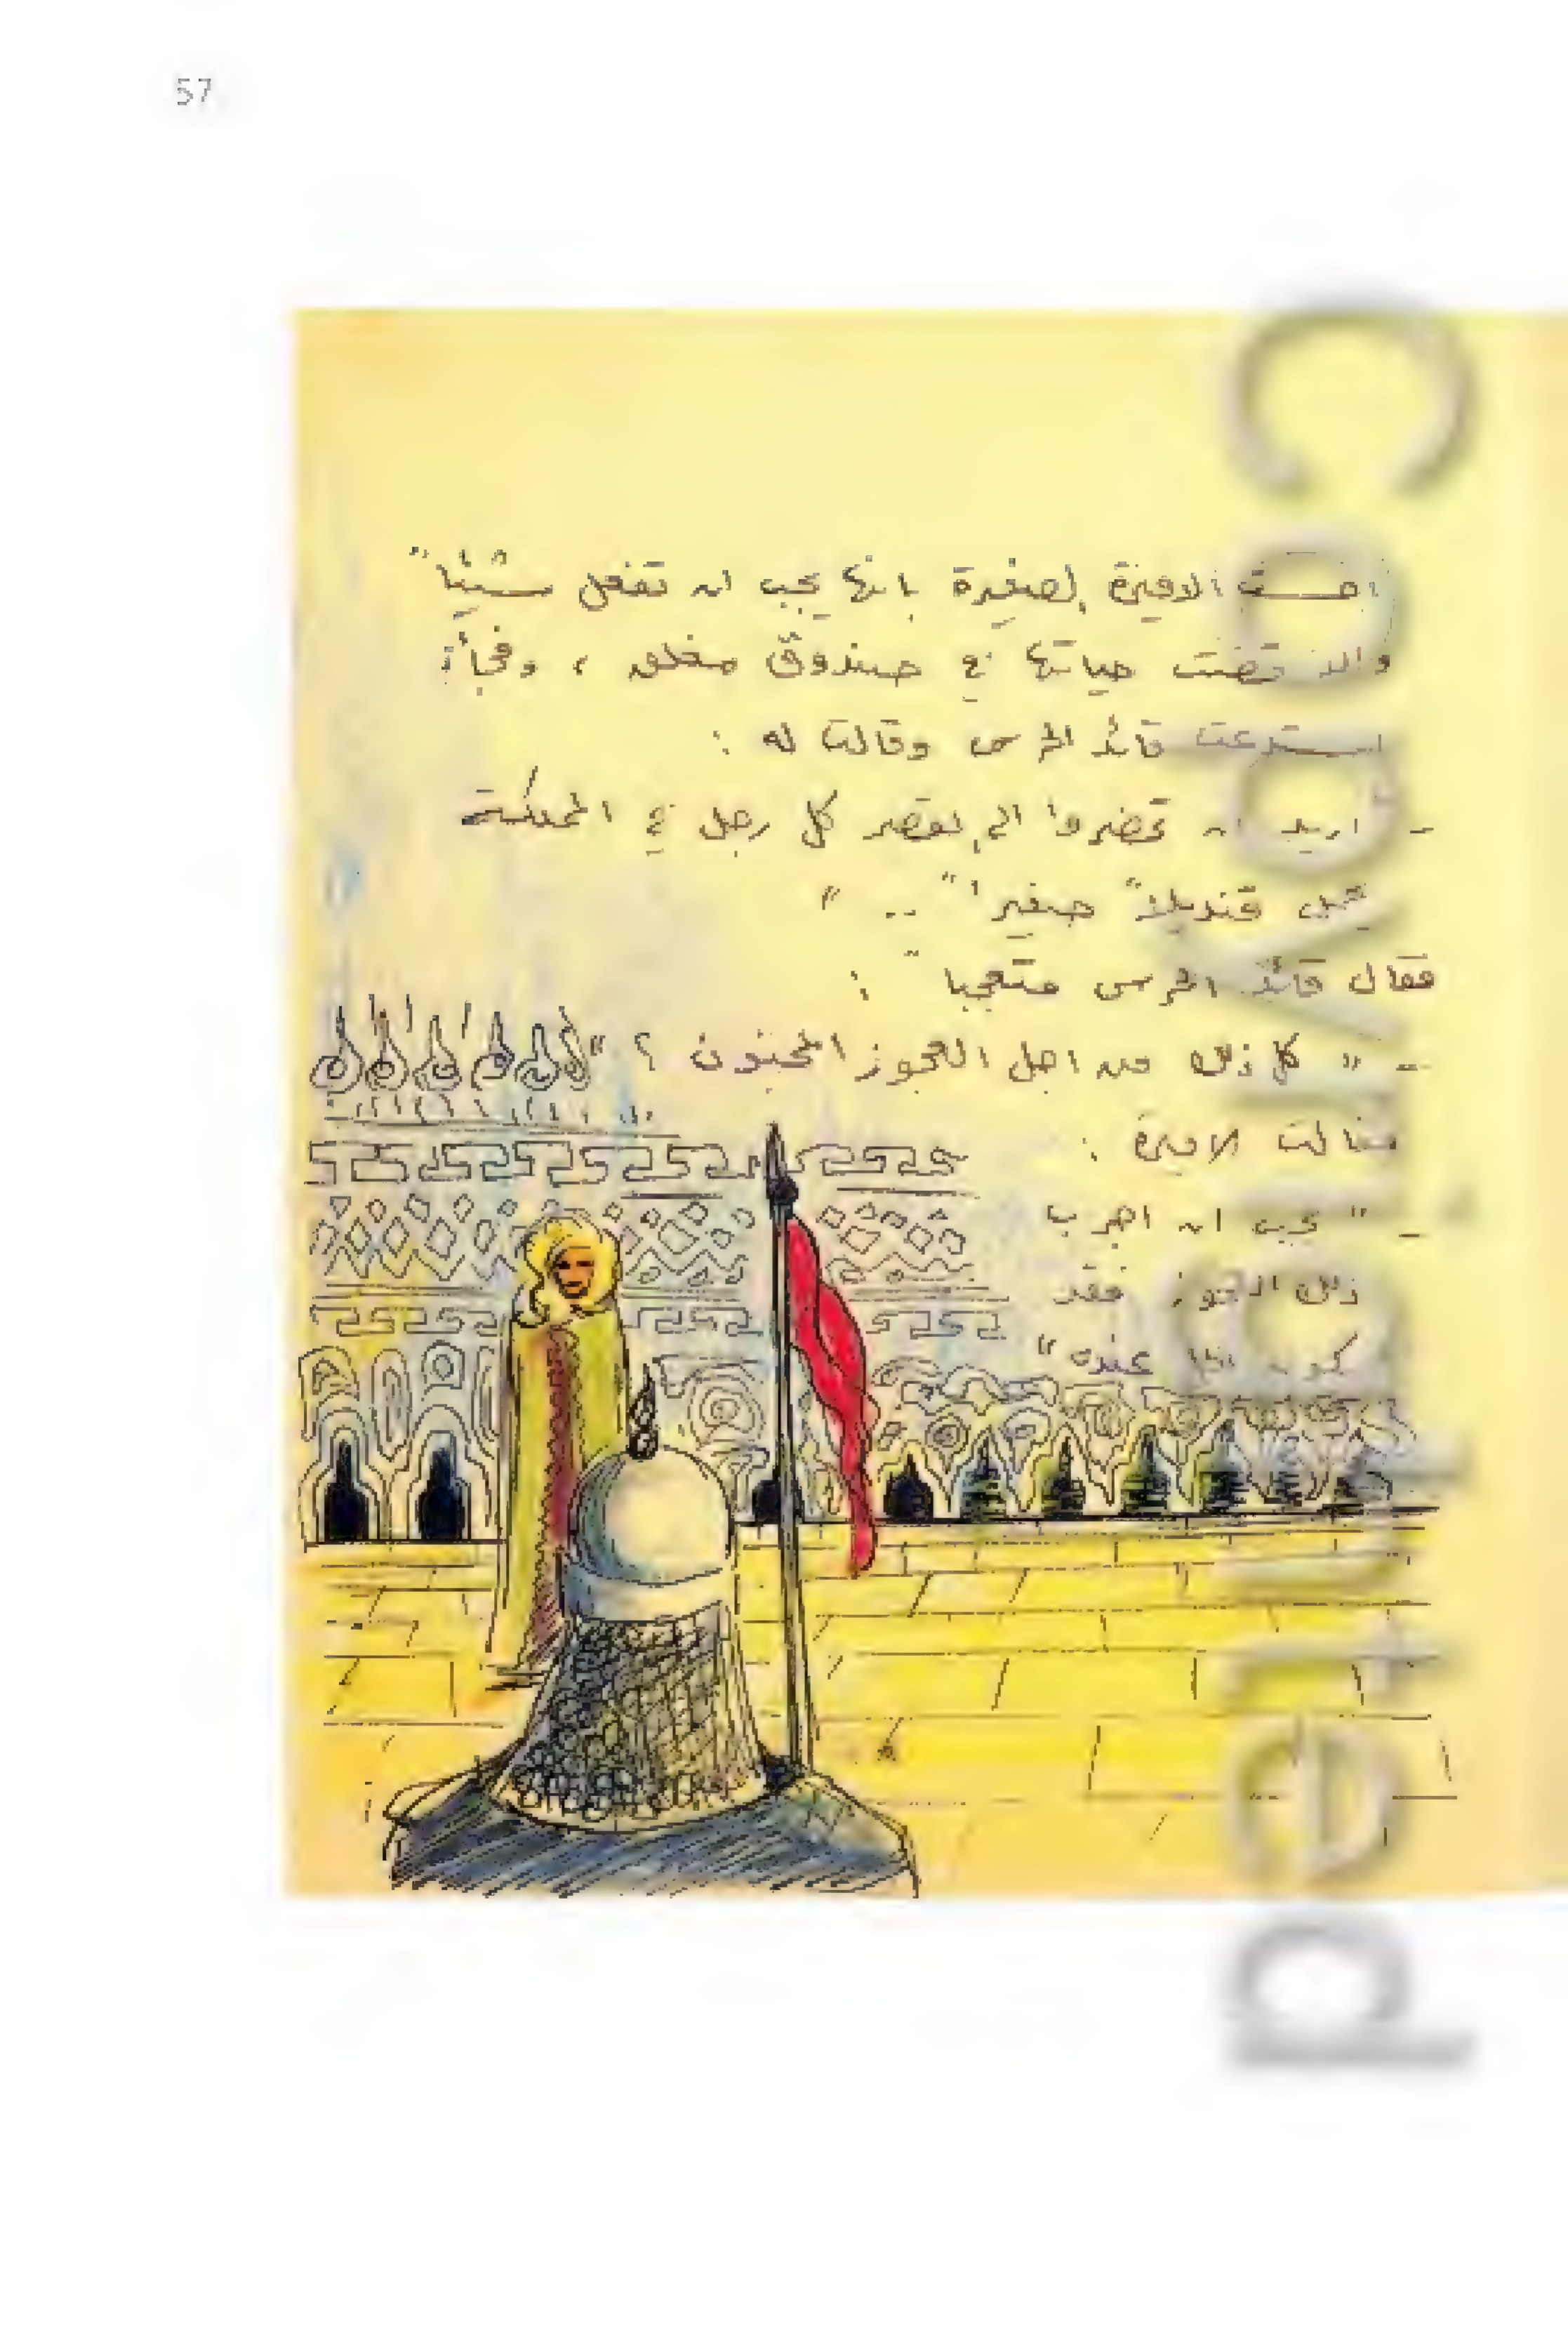 57
احست الاميرة الصغيرة بانها يجب ان تفعل شيئاً
والا قضت حياتها في صندوق مغلق ، وفجأة
استدعت قائد الحرس وقالت له :
- اريد ان تحضروا الى القصر كل رجل في المملكة
يحمل قنديلاً صغيراً .. "
فقال قائد الحرس متعجباً :
- " كل ذلك من اجل العجوز المجنون ؟ "
فقالت الاميرة :
- " يجب ان اجرب
ذلك العجوز فقد
عنده "
Copyrighted